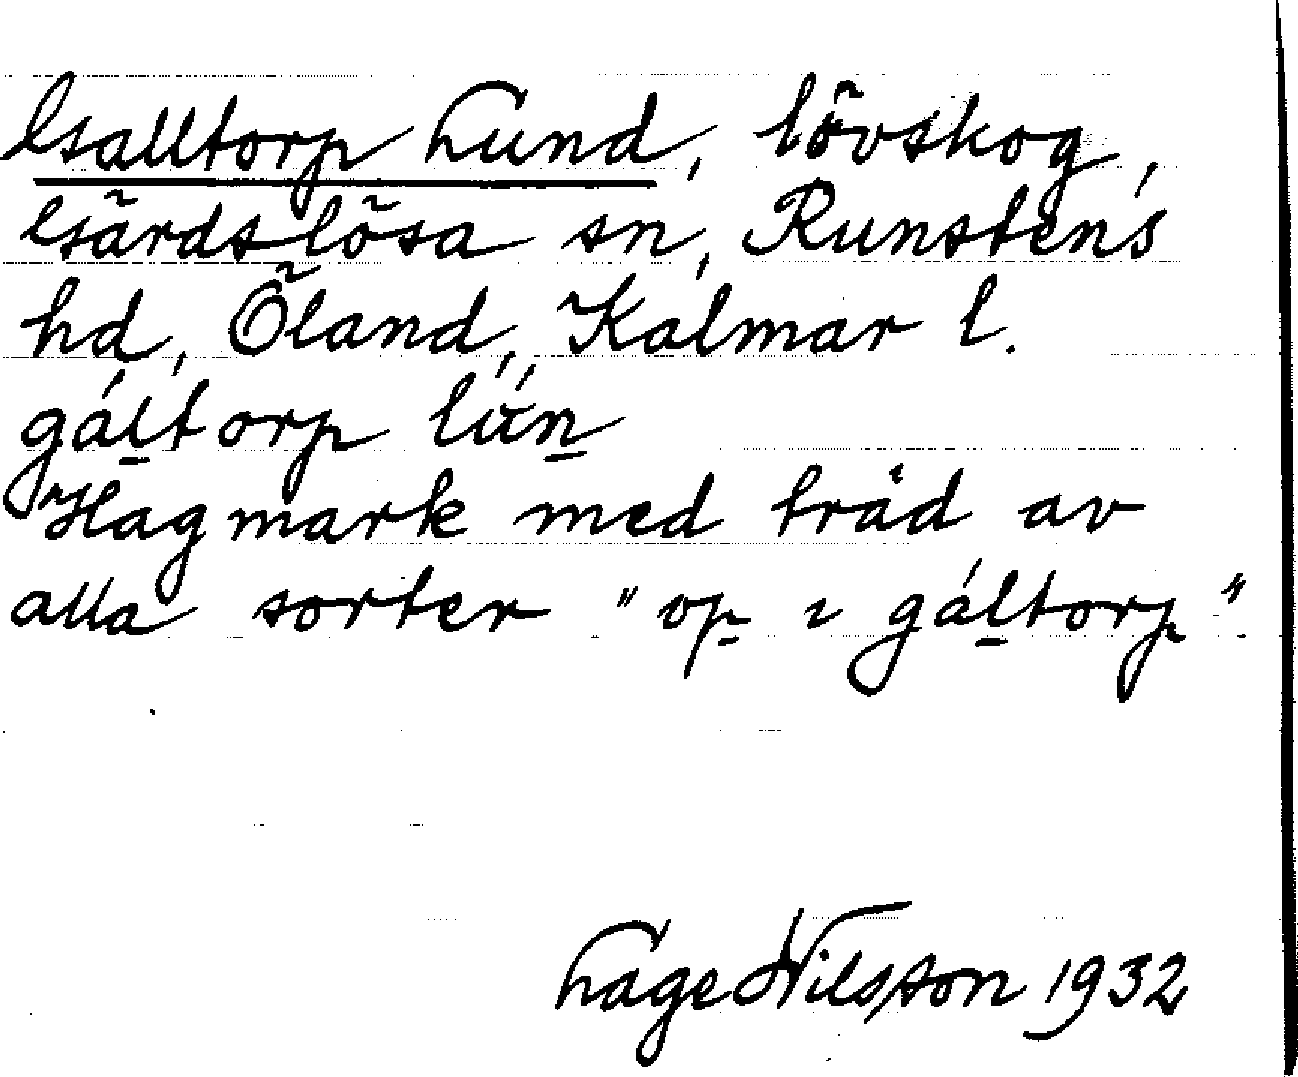 Galltorp Lund, lövskog,
Gärdslösa sn, Runstens
hd, Öland, Kalmar l.
gál̲torp lún̲
Hagmark med träd av
alla sorter "op̲ ı gál̲torp"
Lage Nilsson 1932